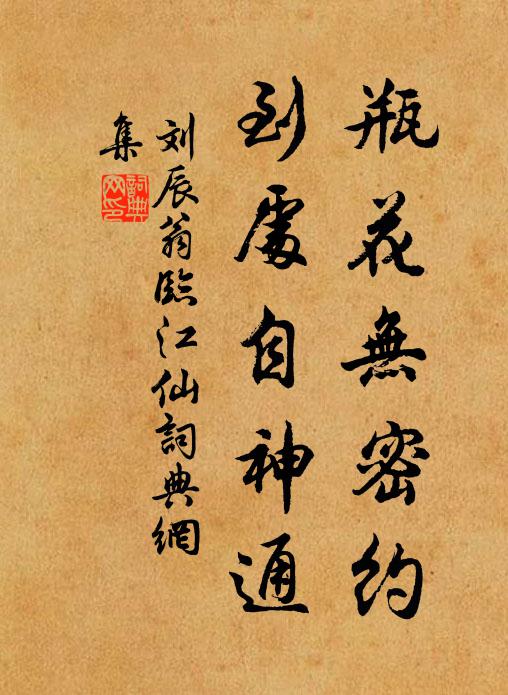 瓶花無密約
到處自神通
刘辰翁臨江仙詞典網
集
詞典网印